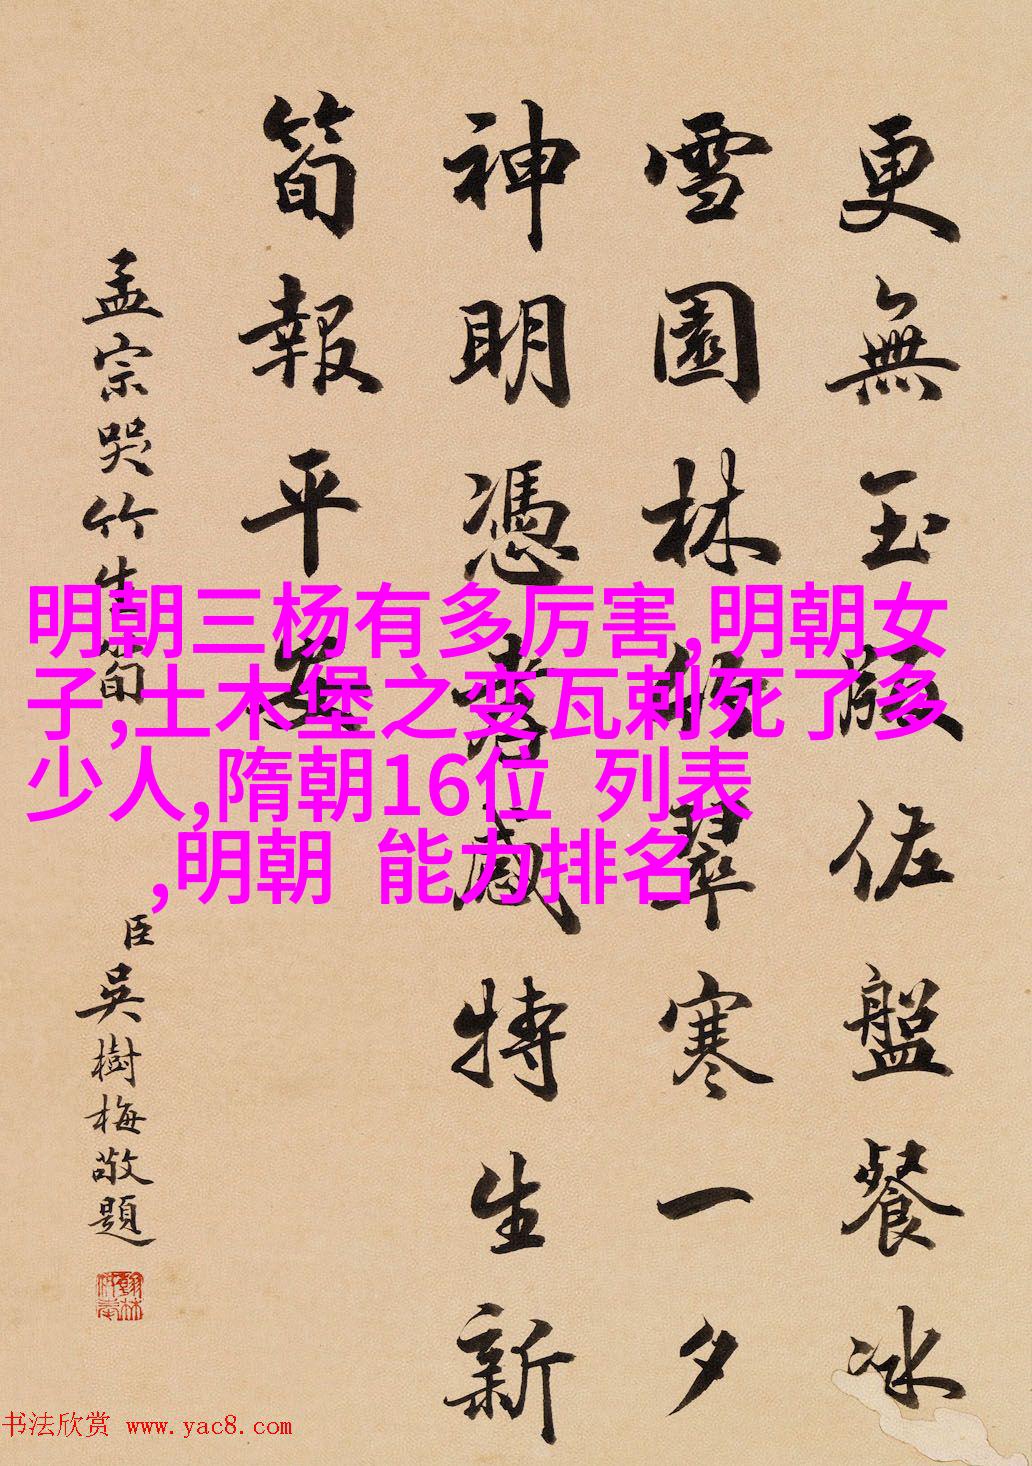 更無玉版佐盤餐冰
雪園林
翠寒一夕
神明憑
感特生新
筍報平
孟宗哭竹生筍
臣吳樹梅敬題
明朝三杨有多厉害,明朝女
子,土木堡之变瓦剌死了多
少人,隋朝16位 列表
,明朝 能力排名
书法欣赏 www.yac8.com